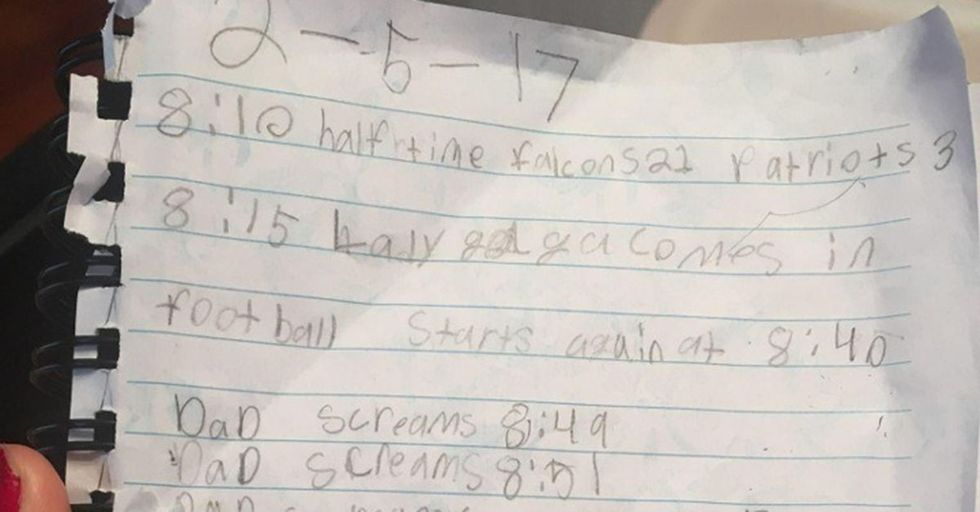 2-5-17
8:10 half time falcons 21 Patriots 3
8:15 Lady gaga comes in
football Starts again at 8:40
DaD screams 8:49
DaD screams 8:51